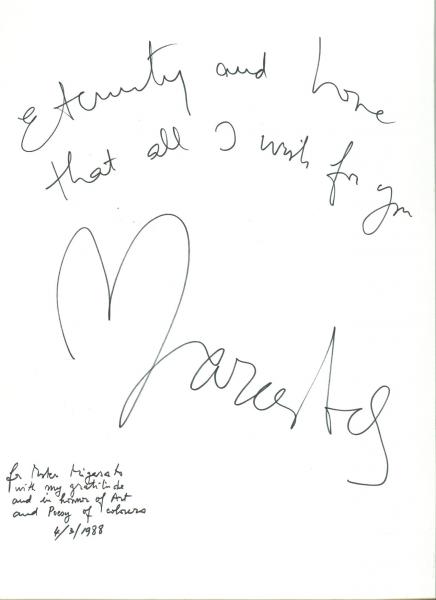 Eternity and Love
that all I wish for you
for Mister Migarato
with my gratitude
and in honor of Art
and Poesy of colours
4/3/1988